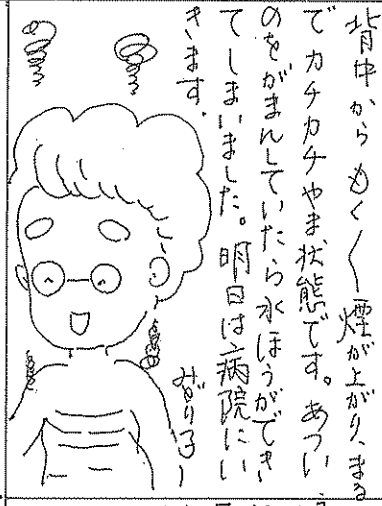 背中からもく〱煙が上がり、まる
でカチカチやま状態です。あつい
のをがまんしていたら水ほうができ
てしまいました。明日は病院にい
きます。
みどり子